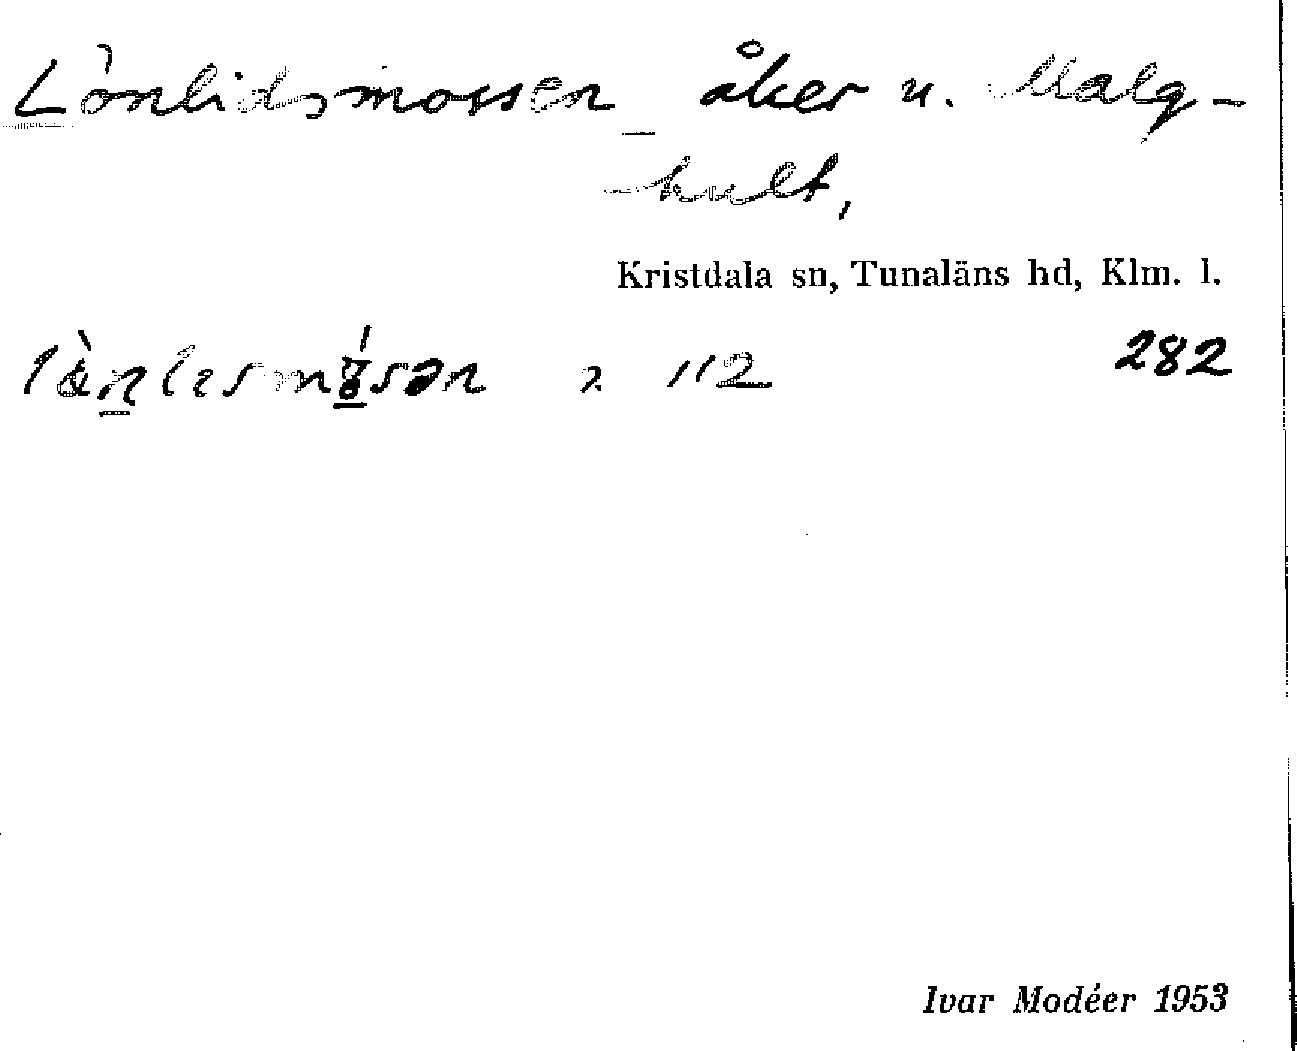 Lönlidsmossen åker u. Malg-
hult,
Kristdala sn, Tunaläns hd, Klm. l.
112 282
Ivar Modéer 1953